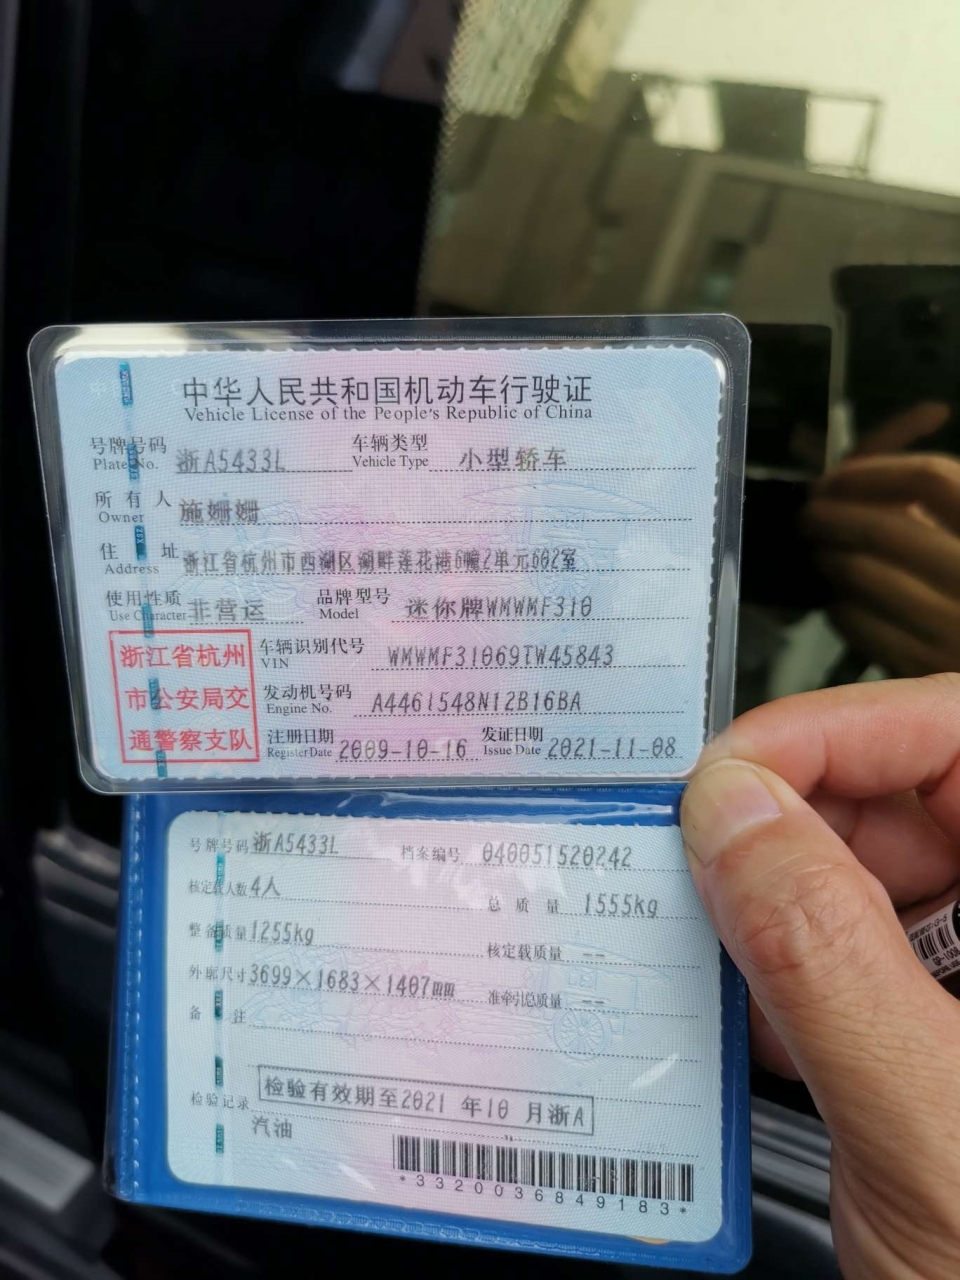 中华人民共和国机动车行驶证
Vehicle License of the People's Republic of China
号牌号码 浙A5433L 车辆类型 小型轿车
Plate No. Vehicle Type
所有人 施姗姗
Owner
住址 浙江省杭州市西湖区湖畔莲花港6幢2单元602室
Address
使用性质 非营运 品牌型号 迷你牌WMWMF310
Use Character Model
浙江省杭州
市公安局交
通警察支队
车辆识别代号 WMWMF31069TW45843
VIN
发动机号码 A4461548N12B16BA
Engine No.
注册日期 2009-10-16 发证日期 2021-11-08
Register Date Issue Date
号牌号码 浙A5433L 档案编号 040051520242
核定载人数 4人 总质量 1555kg
整备质量 1255kg 核定载质量 --
外廓尺寸 3699×1683×1407mm 准牵引总质量 --
备注
检验记录 检验有效期至2021年10月浙A
汽油
*3320036849183*